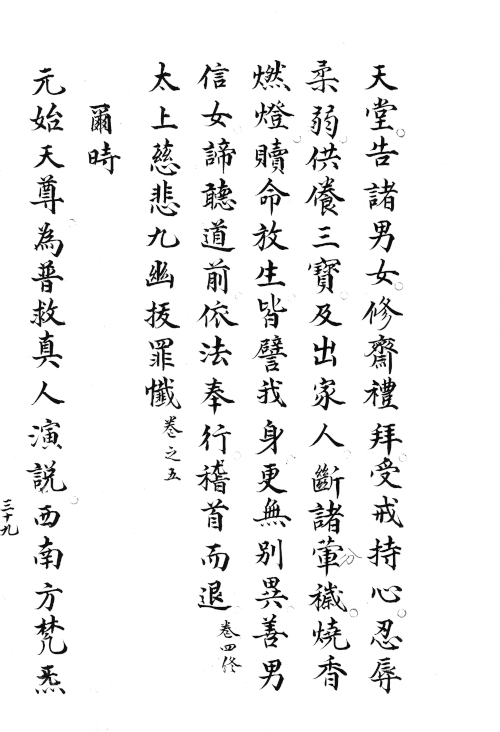 天堂告諸男女修齋禮拜受戒持心忍辱
柔弱供養三寶及出家人斷諸葷穢燒香
燃燈贖命放生皆譬我身更無別異善男
信女諦聽道前依法奉行稽首而退 卷四終
太上慈悲九幽拔罪懺 卷之五
爾時
元始天尊為普救真人演說西南方梵炁
三十九